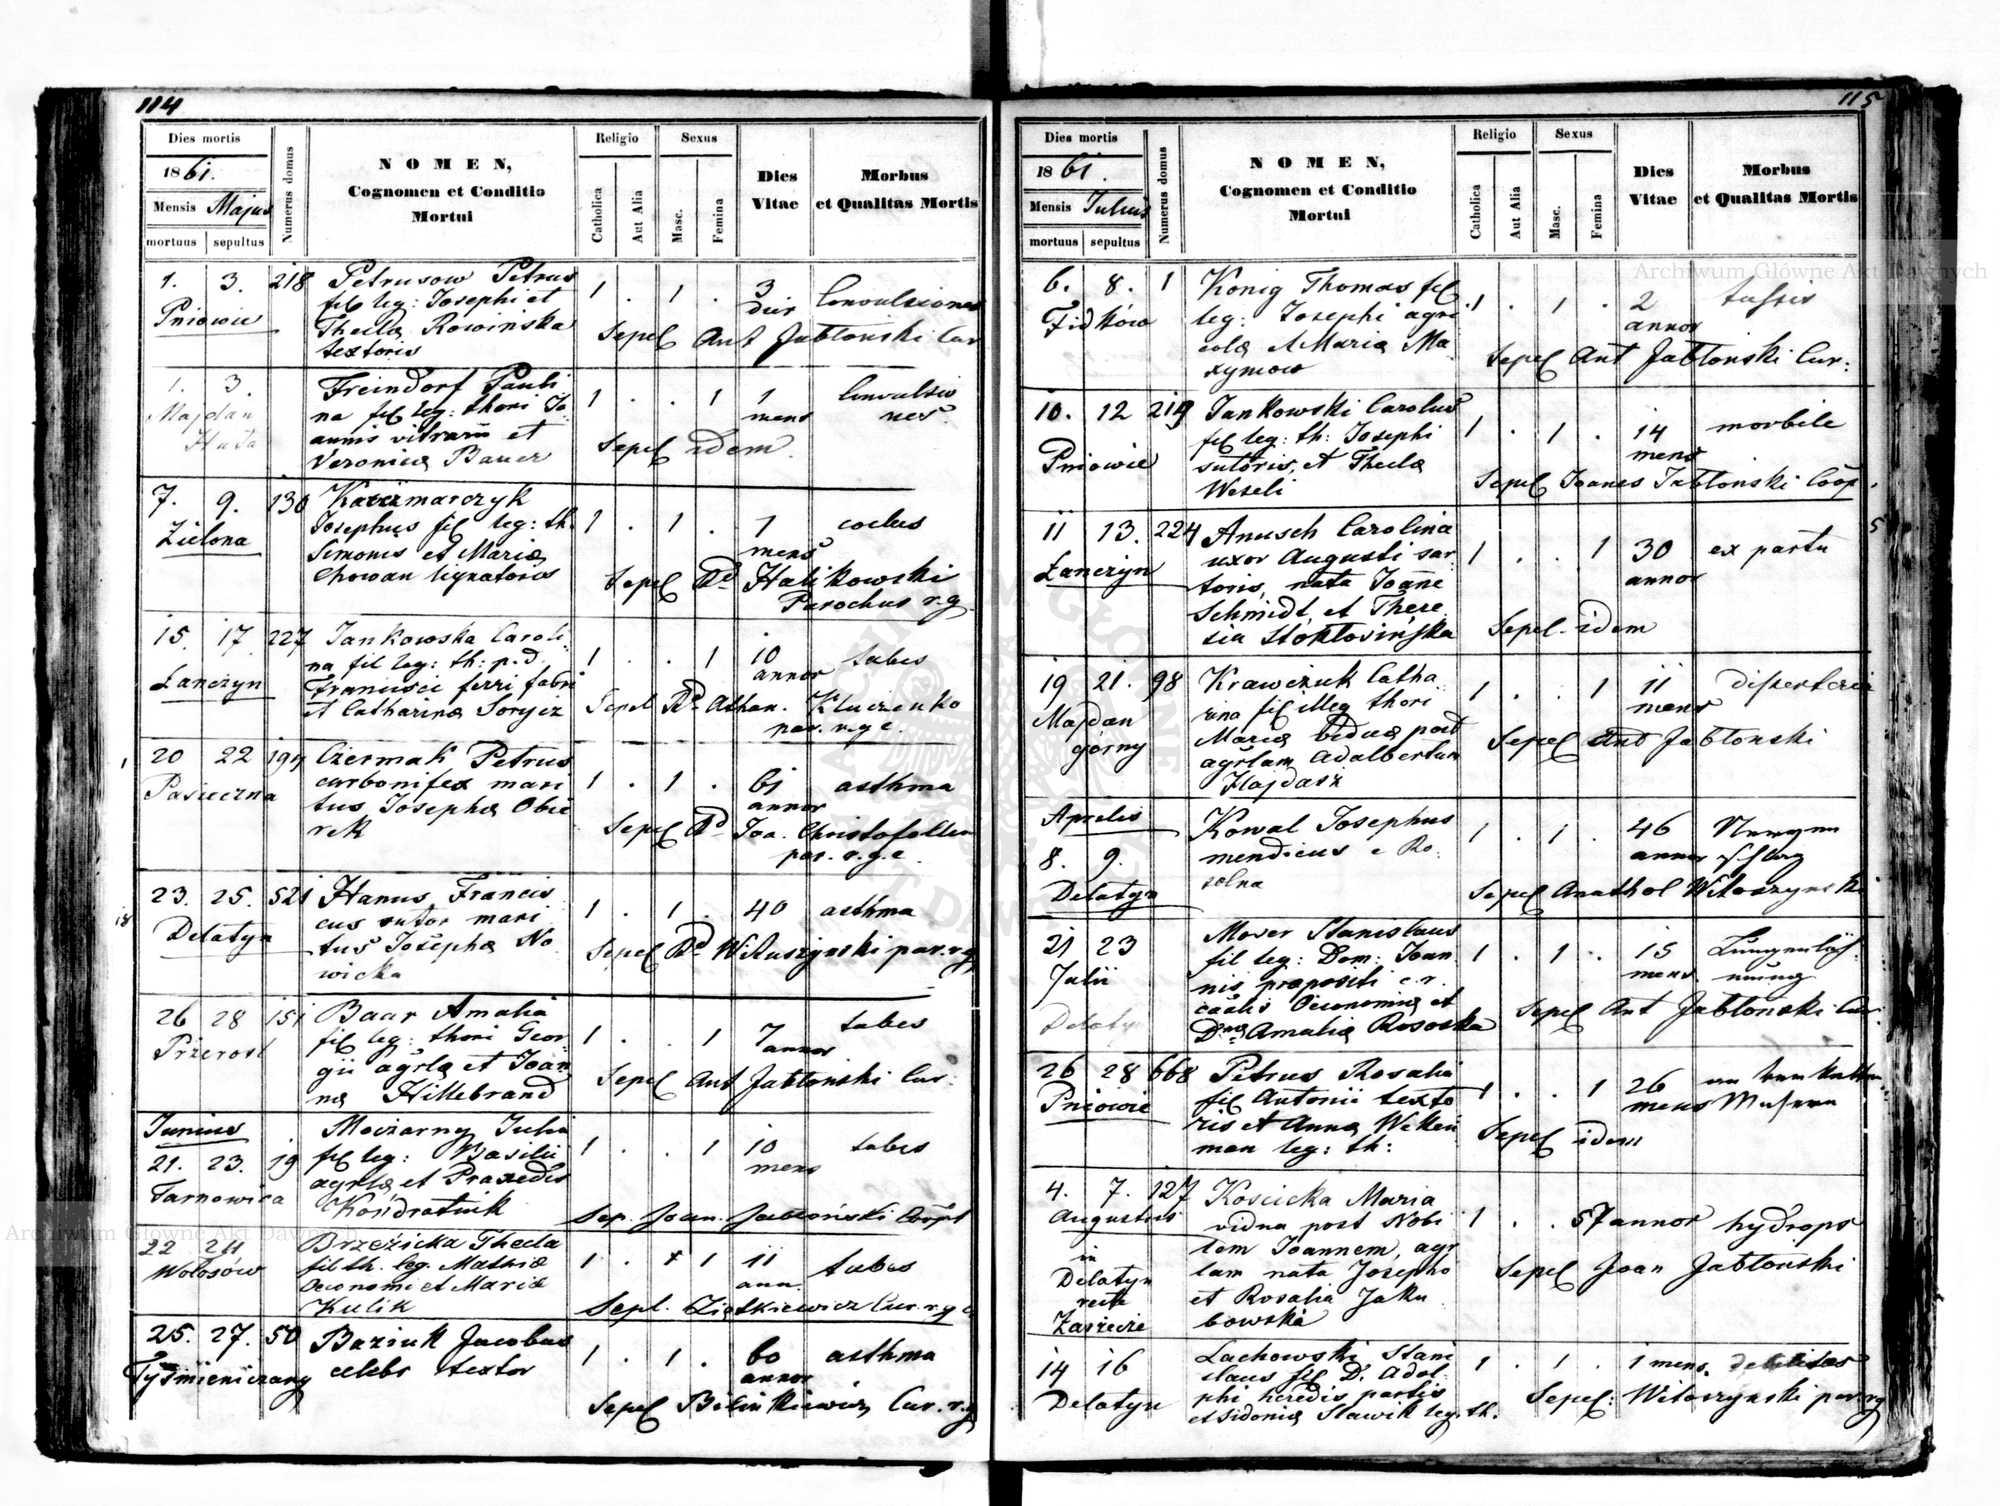 114
Dies mortis
1861.
Mensis Majus
mortuus sepultus
Numerus domus
NOMEN,
Cognomen et Conditio
Mortui
Religio
Catholica
Aut Alia
Sexus
Masc.
Femina
Dies
Vitae
Morbus
et Qualitas Mortis
1. 3. 218 Petrusow Petrus 1 . 1 . 3 Convulsiones
Pniowie fil leg: Josephi et dier
Thecla Rowińska Sepel Ant Jabłonski Cur
textoris
1. 3. Freindorf Pauli 1 . . 1 1 Convulsio
Majdan na fil leg: thori Jo mens nes
Huta annis vitrarii et Sepel idem
Veronica Bauer
7. 9. 130 Kaczmarczyk
Zielona Josephus fil leg: th. 1 . 1 . 1
Simonis et Maria mens
Chowan lignatoris Sepel Rd Halikowski
Parochus r.g.
15. 17. 227 Jankowska Caroli
Łanczyn na fil leg: th: p.d. 1 . . 1 10 tabes
Francisci ferri fabri annor
et Catharina Sorycz Sepel Rd Athan. Kluczenko
par. r.g.c.
20 22 199 Czermak Petrus
Pasieczna carbonifex mari 1 . 1 . 61 asthma
tus Josepha Obie annor
rek Sepel Rd Joa. Christofellen
par. r.g.c.
23. 25. 521 Hanus Francis
18 Delatyn cus sutor mari 1 . 1 . 40 asthma
tus Josepha No
wicka Sepel Rd Witoszynski par. r.g
26 28 151 Baar Amalia
Przerost fil leg: thori Geor 1 . . 1 7 tabes
gii agrlæ et Joan annor
na Hillebrand Sepel Ant Jabłonski Cur.
Junius Moczarny Julia
21. 23. 19 fil leg: Basilii 1 . . 1 10 tabes
Tarnowica agrlæ et Praxedis mens
Kondratiuk Sep. Joan. Jabłoński Coopt
22 24 Brzezicka Thecla
Wołosów fil th. leg. Mathiæ 1 . 1 11 tabes
Oeconomi et Mariæ ann.
Kulik Sepl. Ziętkiewicz Cur. r.g c.
25. 27. 50 Baziuk Jacobus 1 . 1 . 60 asthma
Tyśmieniczany celebs textor annor
Sepel Bilinkiewicz Cur. r.g
115
Dies mortis
1861.
Mensis Julius
mortuus sepultus
Numerus domus
NOMEN,
Cognomen et Conditio
Mortui
Religio
Catholica
Aut Alia
Sexus
Masc.
Femina
Dies
Vitae
Morbus
et Qualitas Mortis
6. 8. 1 König Thomas fil 1 . 1 . 2 tussis
leg: Josephi agri annor
colæ et Maria Ma Sepel Ant Jabłonski Cur:
xymow
10. 12 219 Jankowski Carolus 1 . 1 . 14 morbile
Pniowie fil leg: th: Josephi mens
sutoris, et Thecla Sepel Joanes Jabłonski Coop.
Weseli
11 13. 224 Anusch Carolina 5
Łanczyn uxor Augusti sar 1 . . 1 30 ex partu
toris, nata Joãne annor
Schmidt, et There
sia Sepel. idem
19 21. 98 Krawczuk Catha 1 . . 1 11
Majdan rina fil illeg thori mens
górny Maria vidua post Sepel Ant Jabłonski
agrlam Adalbertum
Hajdasz
Aprilis Kowal Josephus 1 . 1 . 46
8. 9. mendicus e Ro annor
Delatyn zolna Sepel Anathol Witoszynski
21 23 Moser Stanislaus
Julii fil leg: Dom: Joan 1 . 1 . 15
Delatyn nis præpositi c.r. mens.
Oeconomiæ et Sepel Ant Jabłonski Cur.
Dnæ Amalia Rososka
26 28 668 Petrus Rosalia
Pniowie fil Antonii texto 1 . . 1 26
ris et Anna mens
man leg: th: Sepel idem
4. 7. 127 Koscicka Maria
Augustus vidua post Nobi 1 . . 57 annor hydrops
in lem Joannem, agr
Delatyn lam nata Josepho Sepel Joan Jabłonski
recte et Rosalia Jaku
Zarzecze bowska
14 16 Lachowski Stanis 1 . 1 . 1 mens. debilitas
Delatyn laus fil D. Adol
phi heredis partis Sepel: Witoszynski par. r.g
et Sidonia Sławik leg. th.
Archiwum Główne Akt Dawnych
Archiwum Główne Akt Dawnych
ARCHIWUM GŁÓWNE AKT DAWNYCH